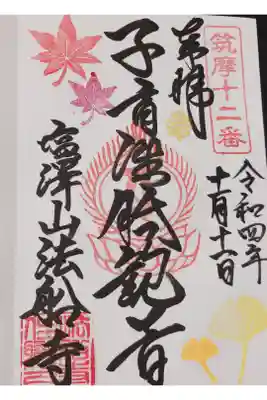 筑摩十二番
奉拝
令和四年
十一月十一日
子育準胝観音
澤山法船寺